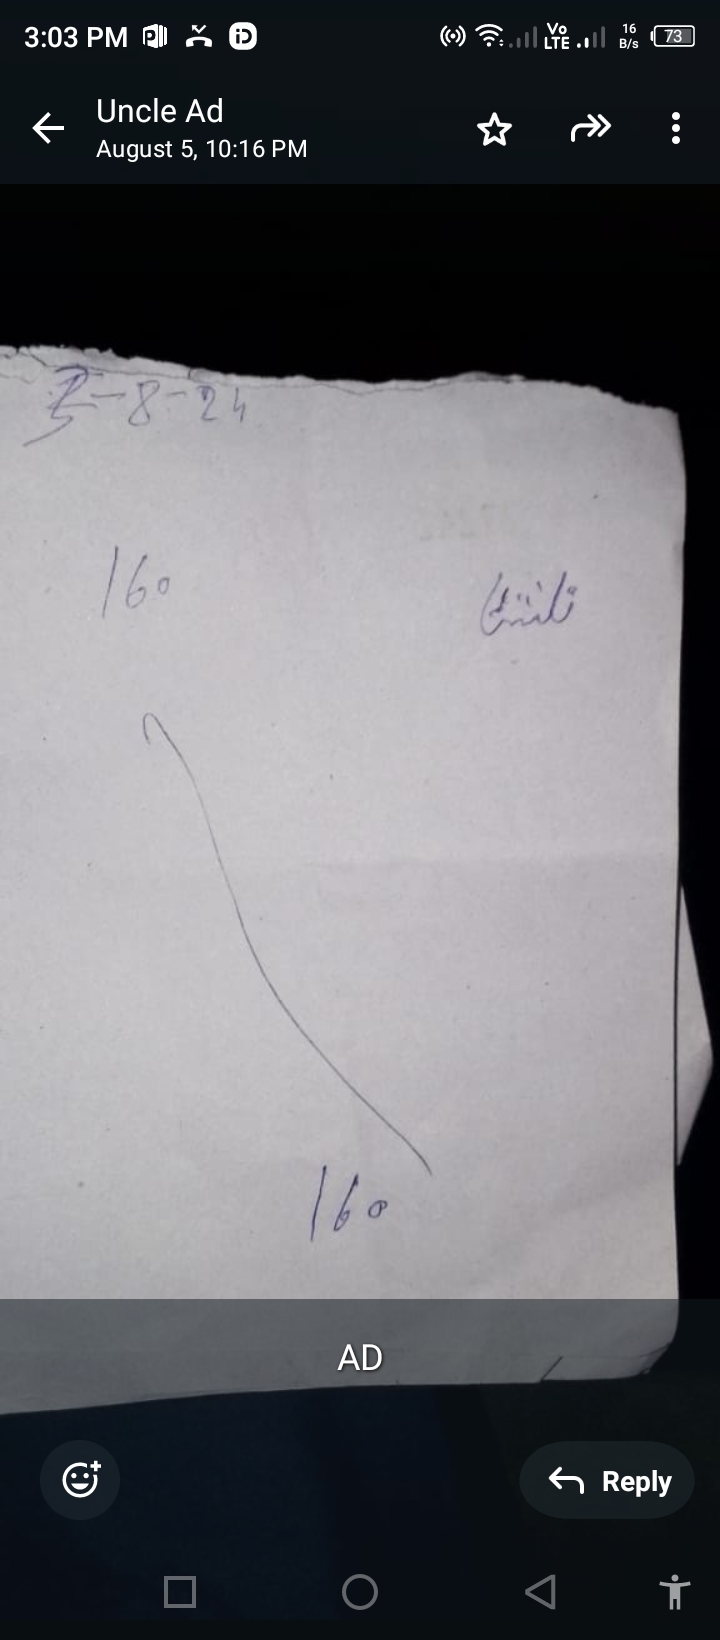 3:03 PM
16 B/s
Vo LTE
73
Uncle Ad
August 5, 10:16 PM
-8-24
160
ناشتہ
160
AD
Reply